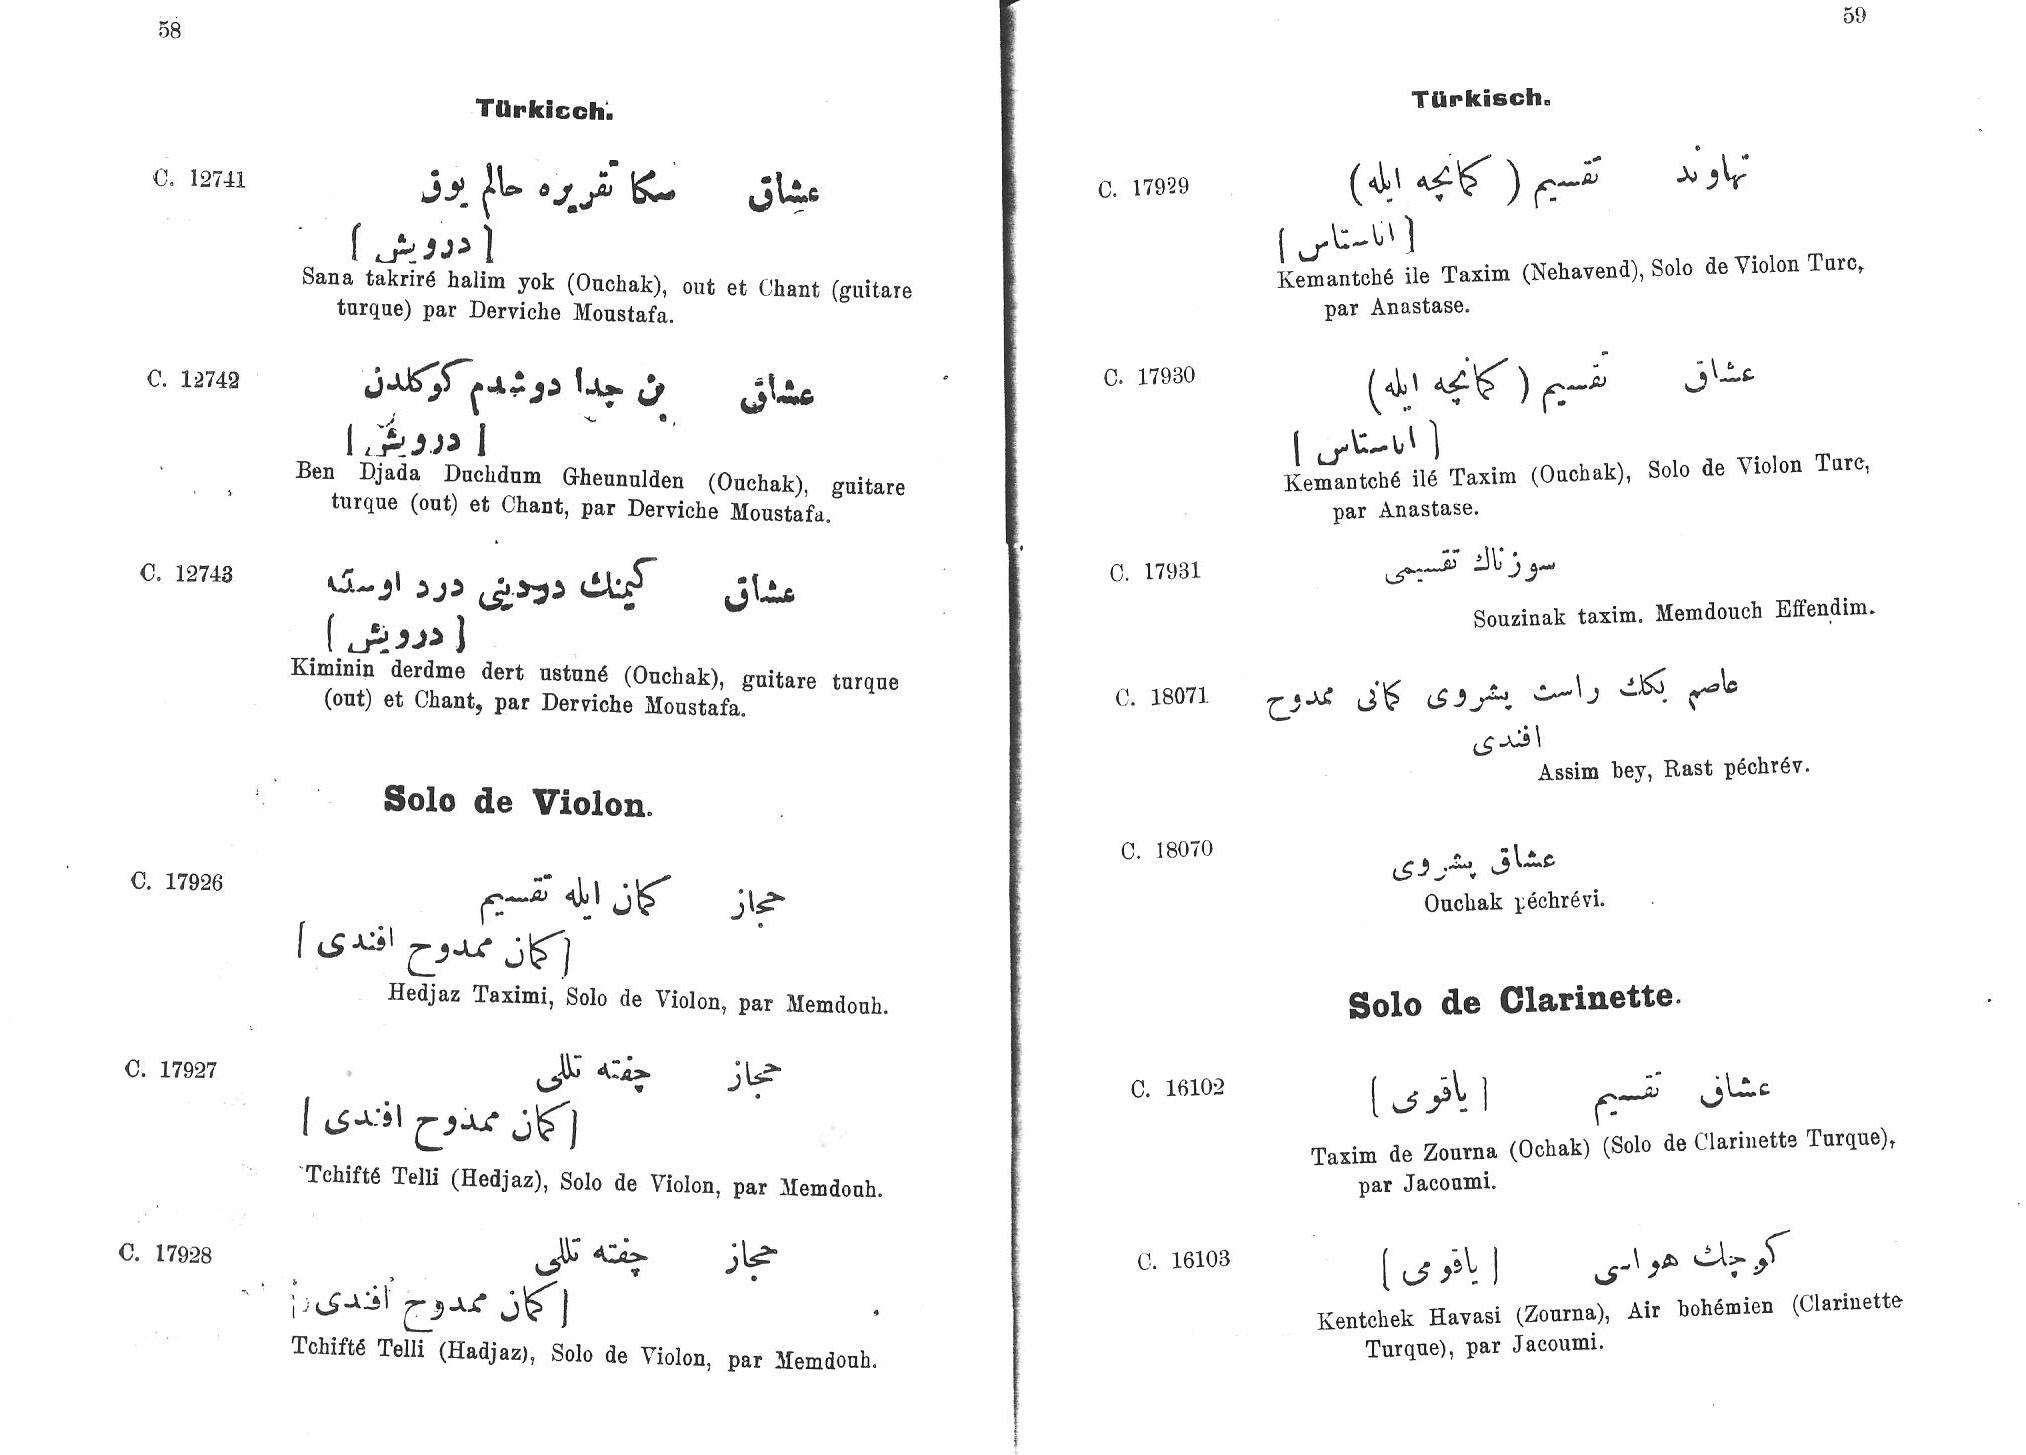 58
Türkisch.
C. 12741
عشاق سكا تقريره حالم يوق
[ درويش ]
Sana takriré halim yok (Ouchak), out et Chant (guitare
turque) par Derviche Moustafa.
C. 12742
عشاق بن جدا دوشدم كوكلدن
[ درويش ]
Ben Djada Duchdum Gheunulden (Ouchak), guitare
turque (out) et Chant, par Derviche Moustafa.
C. 12743
عشاق كيمنك دردينى درد اوسته
[ درويش ]
Kiminin derdme dert ustuné (Ouchak), guitare turque
(out) et Chant, par Derviche Moustafa.
Solo de Violon.
C. 17926
حجاز كمان ايله تقسيم
[ كمان ممدوح افندى ]
Hedjaz Taximi, Solo de Violon, par Memdouh.
C. 17927
حجاز چفته تللى
[ كمان ممدوح افندى ]
Tchifté Telli (Hedjaz), Solo de Violon, par Memdouh.
C. 17928
حجاز چفته تللى
[ كمان ممدوح افندى ]
Tchifté Telli (Hadjaz), Solo de Violon, par Memdouh.
59
Türkisch.
C. 17929
نهاوند تقسيم ( كمانچه ايله )
[ اناستاس ]
Kemantché ile Taxim (Nehavend), Solo de Violon Turc,
par Anastase.
C. 17930
عشاق تقسيم ( كمانچه ايله )
[ اناستاس ]
Kemantché ilé Taxim (Ouchak), Solo de Violon Turc,
par Anastase.
C. 17931
سوزناك تقسيمى
Souzinak taxim. Memdouch Effendim.
C. 18071
عاصم بكك راست پشروى كمانى ممدوح
افندى
Assim bey, Rast péchrév.
C. 18070
عشاق پشروى
Ouchak péchrévi.
Solo de Clarinette.
C. 16102
عشاق تقسيم [ ياقومى ]
Taxim de Zourna (Ochak) (Solo de Clarinette Turque),
par Jacoumi.
C. 16103
كوچك هواسى [ ياقومى ]
Kentchek Havasi (Zourna), Air bohémien (Clarinette
Turque), par Jacoumi.